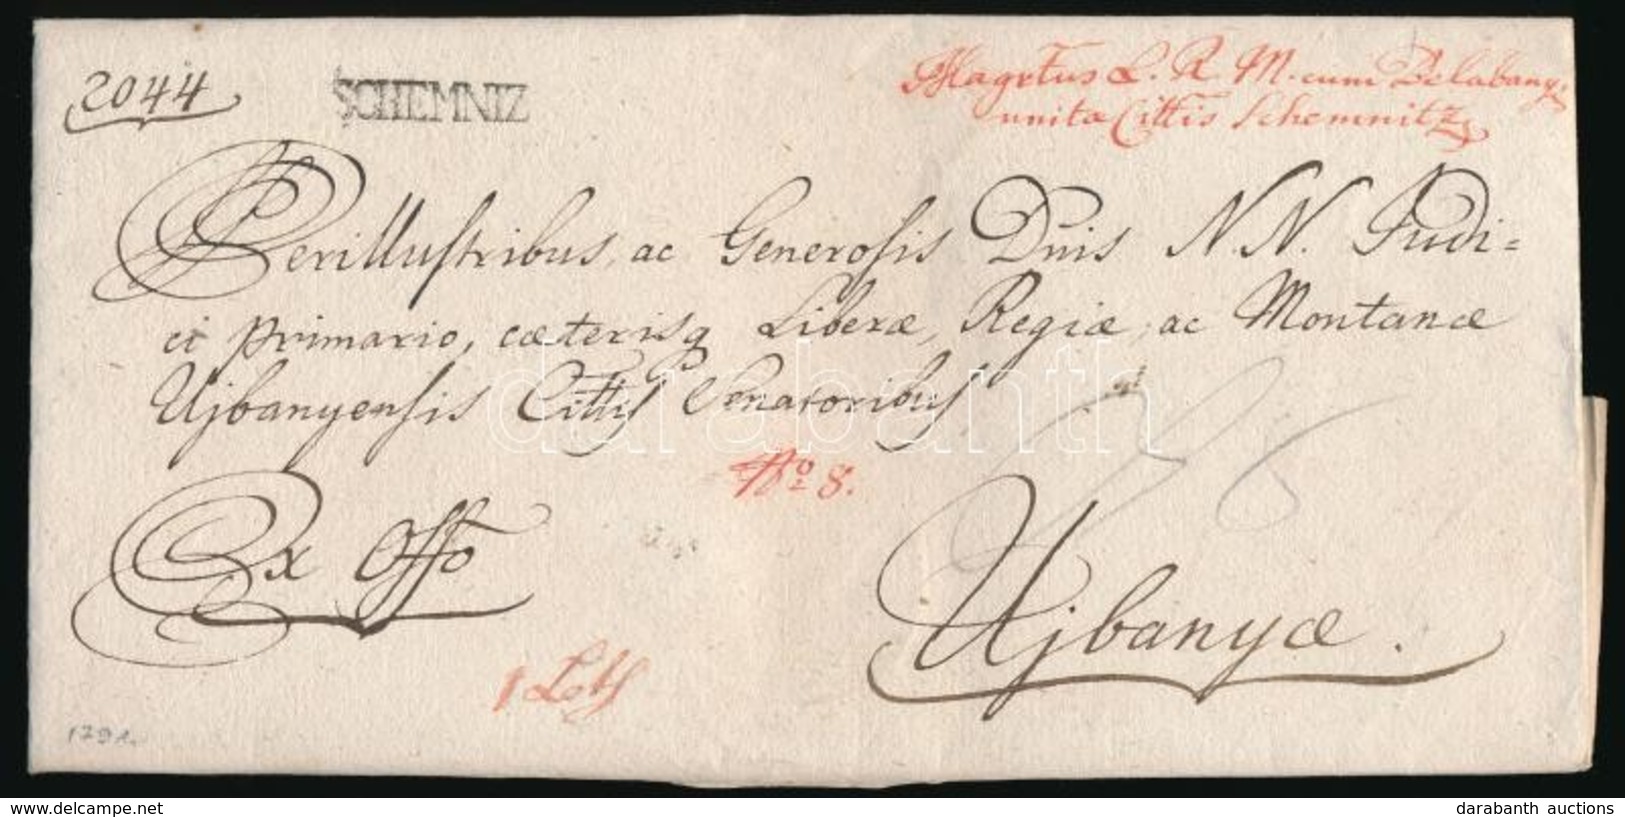 2044
SCHEMNIZ
Magrtus L. R. M. cum Belabany
unita Cittis Schemnitz
Perillustribus, ac Generosis Dnis N. N. Judi=
ci primario, cæterisq Liberæ, Regiæ, ac Montanæ
Ujbanyensis Cittis Senatoribus
No 8.
Ex Offo
Ujbanyæ.
1 Loth
1791.
darabanth
www.delcampe.net
darabanth auctions